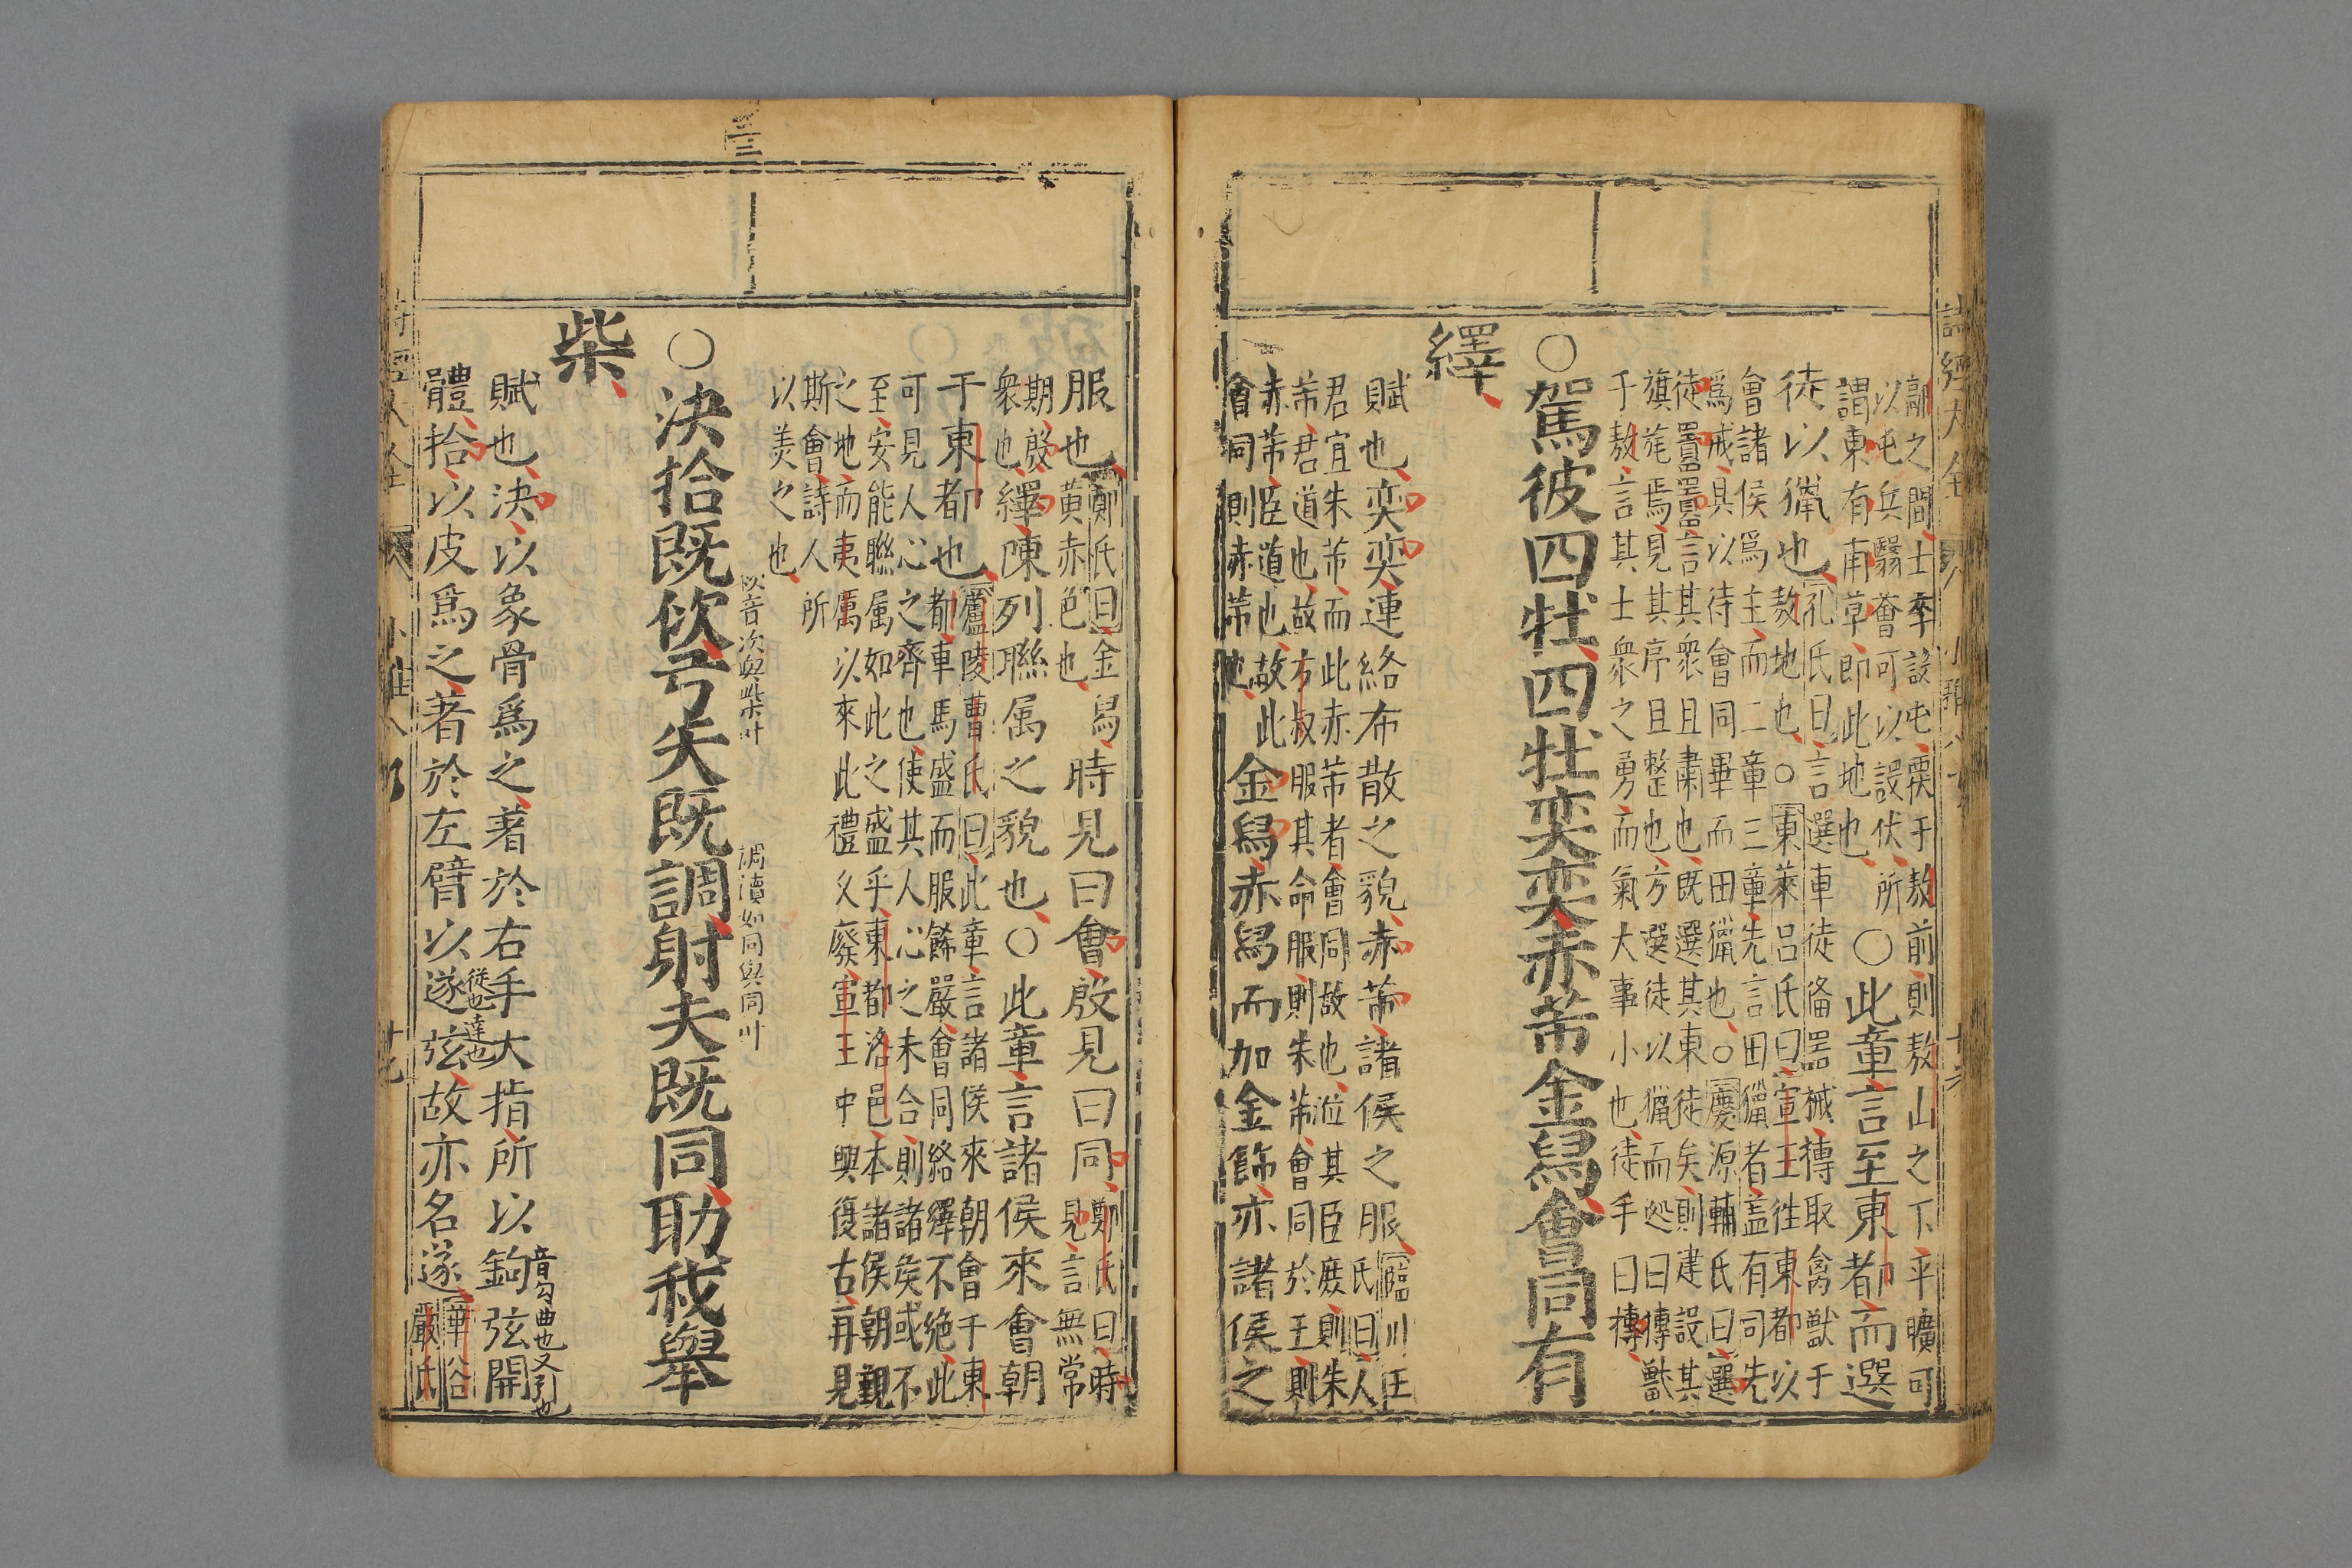 詩經大全
鄗之間士季設屯栗于敖前則敖山之下平曠可
以屯兵翳薈可以設伏所
謂東有甫草即此地也
○此章言至東都而選
徒以獵也孔氏曰言選車徒俻器械摶取禽獸于
敖地也○東萊呂氏曰宣王徃東都以
會諸侯爲主而二章三章先言田獵者盖有司先
爲戒具以待會同畢而田獵也○慶源輔氏曰選
徒囂囂言其衆且肅也既選其東徒矣則建設其
旗旄焉見其序且整也方選徒以獵而廼曰摶獸
于敖言其士衆之勇而氣大事小也徒手曰摶
○駕彼四牡四牡奕奕赤芾金舄會同有
繹
賦也奕奕連絡布散之貌赤芾諸侯之服臨川王
氏曰人
君宜朱芾而此赤芾者會同故也涖其臣庶則朱
芾君道也故方叔服其命服則朱芾會同於王則
赤芾臣道也故此
會同則赤芾也
金舄赤舄而加金飾亦諸侯之
服也鄭氏曰金舄
黃赤色也
時見曰會殷見曰同鄭氏曰時
見言無常
期殷
衆也
繹陳列聯属之貌也○此章言諸侯來會朝
于東都也廬陵曹氏曰此章言諸侯來朝會于東
都車馬盛而服餙嚴會同絡繹不絶此
可見人心之齊也使其人心之未合則諸矦或不
至安能聯属如此之盛乎東都洛邑本諸侯朝覲
之地而夷厲以來此禮乆廢宣王中興復古再見
斯會詩人所
以美之也
佽音次與柴叶
調讀如同與同叶
○決拾既佽弓矢既調射夫既同助我舉
柴
賦也決以象骨爲之著於右手大指所以鉤弦開
音勾曲也又引也
體拾以皮爲之著於左臂以遂弦故亦名遂華谷
嚴氏
從也達也